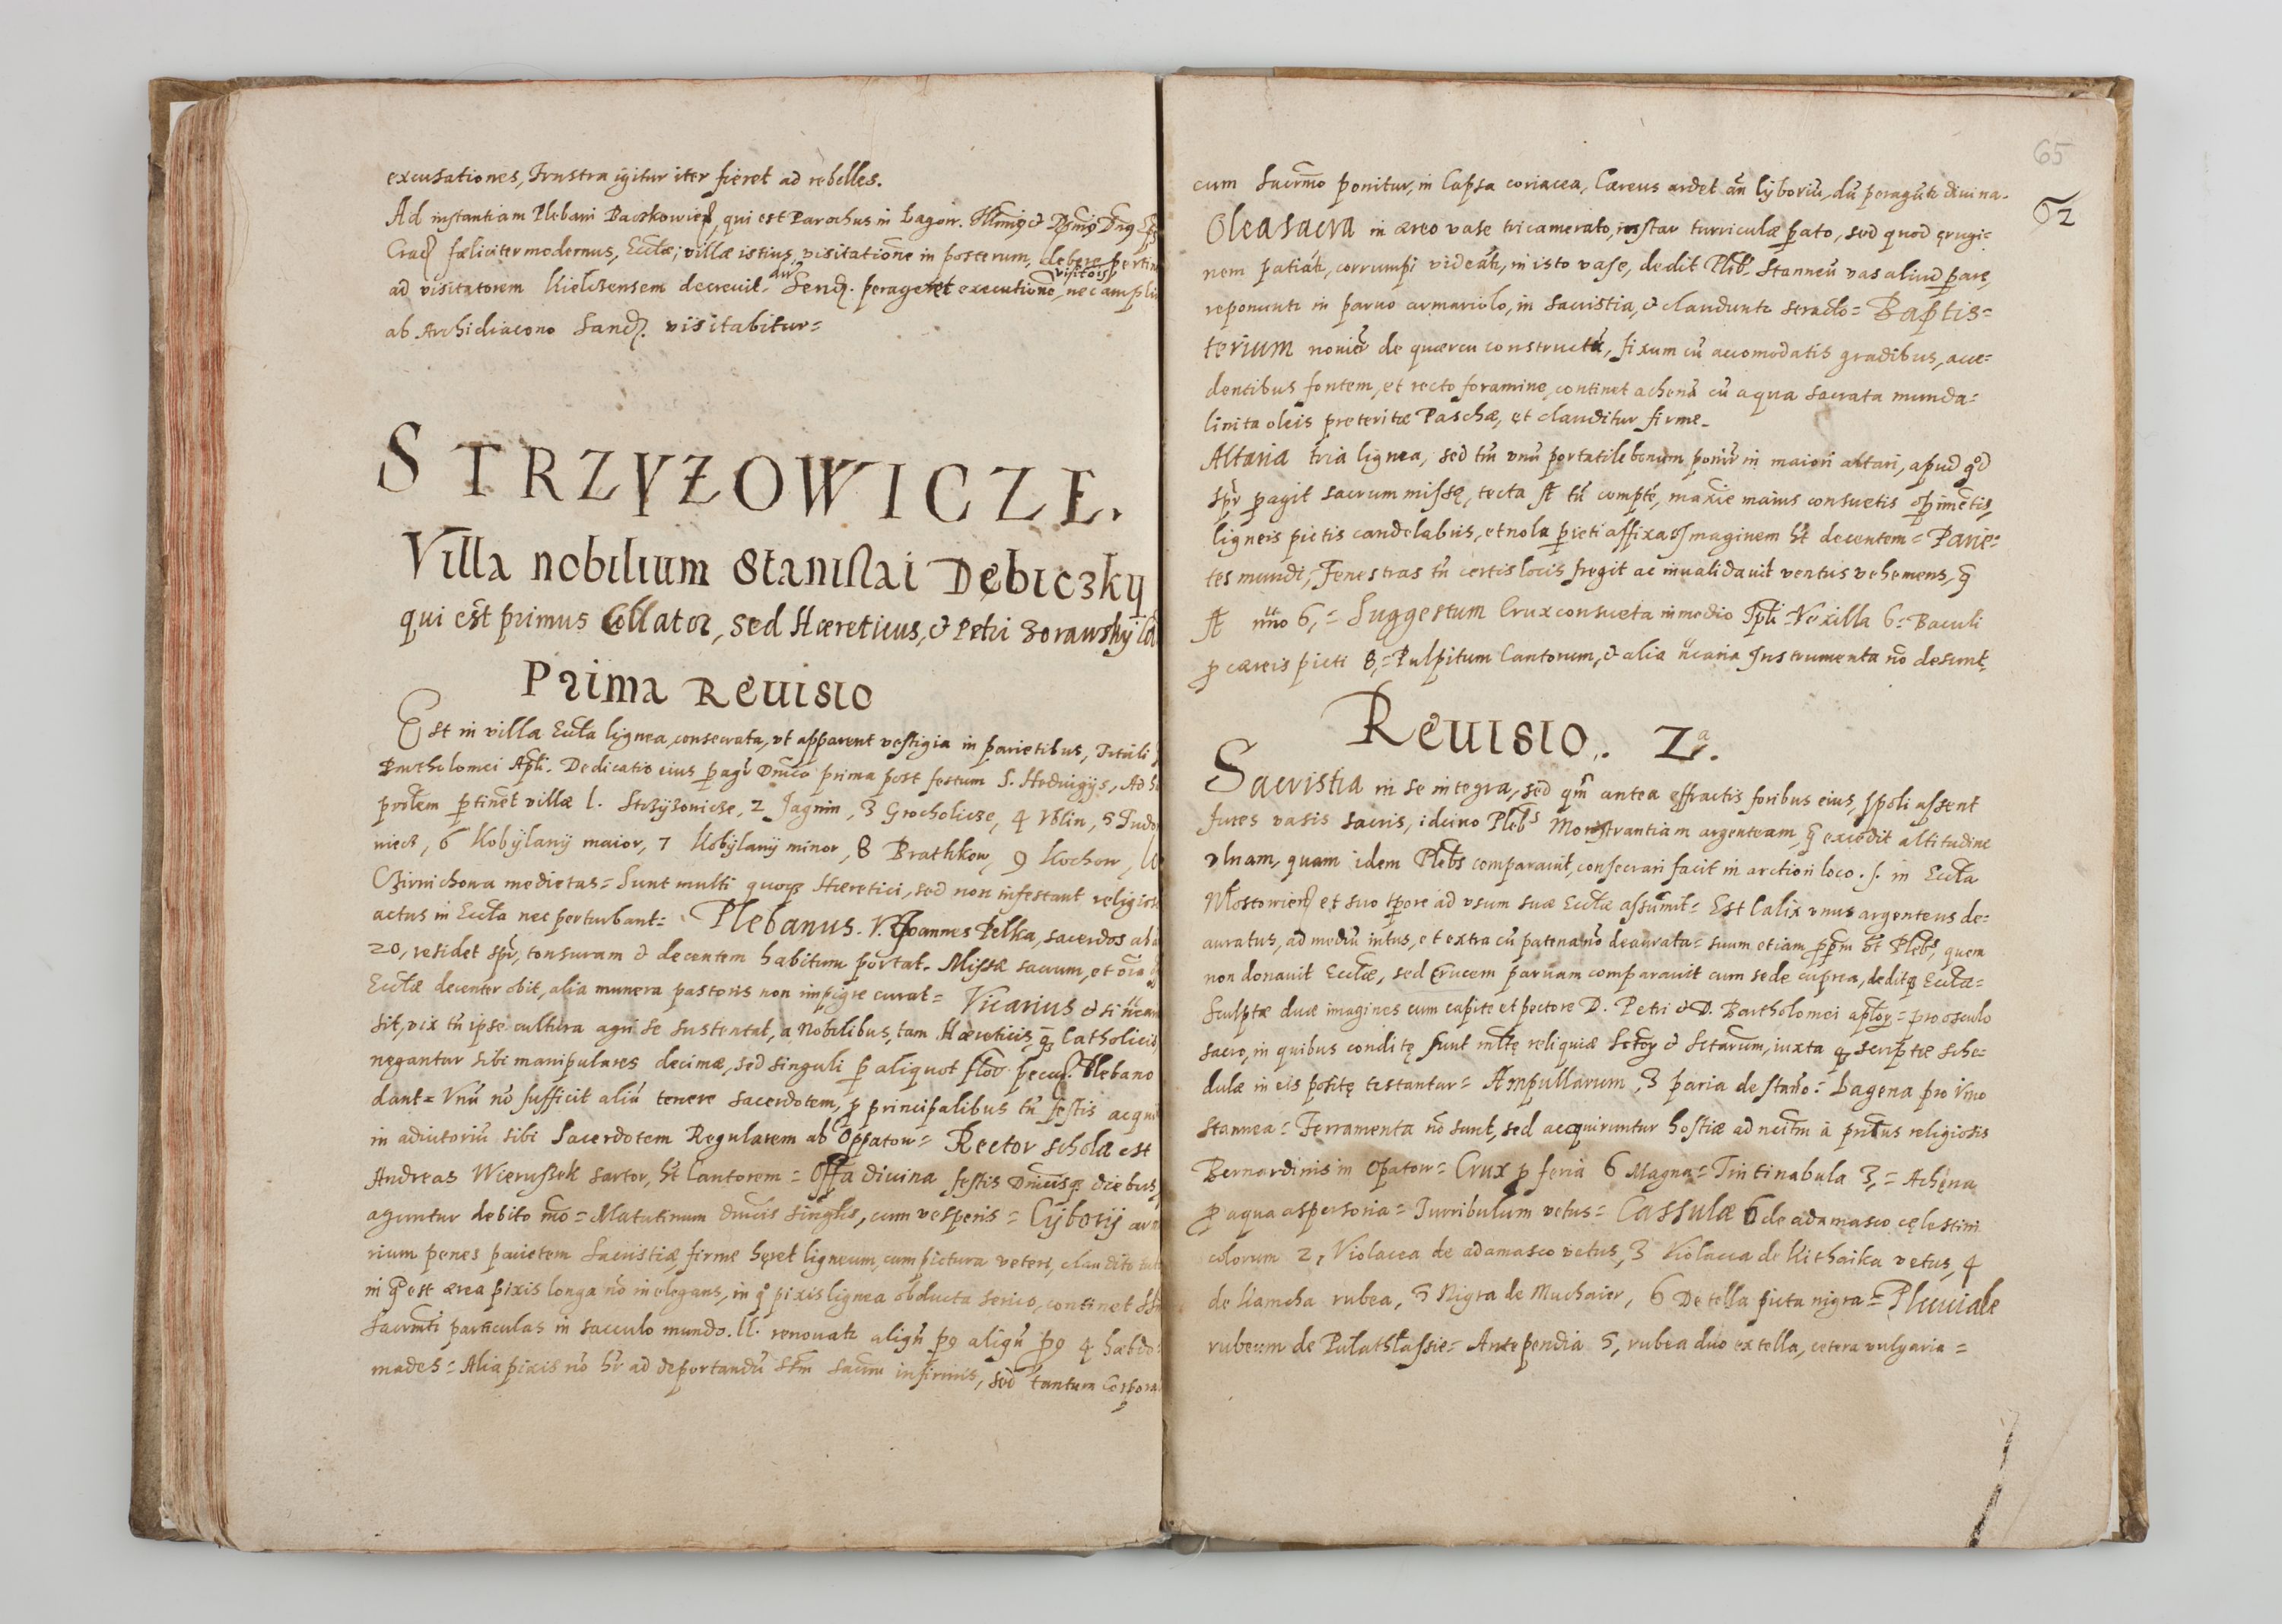 excusationes, Frustra igitur iter fieret ad rebelles.
Ad instantiam Plebani Baczkowicz, qui est Parochus in Lagow.
Crac. fæliciter modernus, Eccłæ, villæ istius, visitationē in posterum, debere pertin
visitors
ad visitatorem Kielczensem decreuit, Send. perageret executionē, nec ampli
ab Archidiacono Sand. visitabitur=
STRZYŻOWICZE.
Villa nobilium Stanislai Dębiczky
qui est primus Collator, sed Hæreticus, & Petri Zorawsky
Prima Reuisio
Est in villa Eccła lignea, consecrata, vt apparent vestigia in parietibus, Tituli
Bartholomei Apli. Dedicatio eius pagr Dnīca prima post festum S. Heduigys, Ad
protem ptinēt villæ 1. Strzyzowicze, 2 Jagnin, 3 Grocholicze, 4 Vblin, 5
6 Kobylany maior, 7 Kobylany minor, 8 Brathkow, 9 Kochow,
Czirnichowa medietas= Sunt multi quoqȝ Hæretici, sed non infestant religios
actus in Eccła nec perturbant= Plebanus. V. Joannes Pelka, sacerdos ab a
20, residet spr, tonsuram & decentem habitum portat. Missæ sacrum, et oīa
Eccłæ decenter obit, alia munera pastoris non impigre curat= Vicarius & si
sit, vix tn̄ ipse cultura agri se sustentat, a Nobilibus, tam Hæreticis, q̄ Catholicis
negantur sibi manipulares decimæ, sed singuli p aliquot flor. pecun. Plebano
dant= Vnū nō sufficit aliū tenere sacerdotem, p principalibus tn̄ festis acqui
in adiutoriū sibi Sacerdotem Regularem ab Oppatow= Rector scholæ est
Andreas Wierussek sartor, ht Cantorem= Offa diuina festis Dnicisqȝ diebus,
aguntur debito mō= Matutinum dnīcis singlis, cum vesperis= Cyborij arm
rium penes parietem Sacristiæ firme hęret ligneum, cum pictura veteri, claudit
in qo est ærea pixis longa nō inelegans, in qo pixis lignea obducta serico, continet
Sacrmti particulas in sacculo mundo. renouatr aliqn̄ p9 aliqn̄ p9 4 hæbdo=
mades= Alia pixis nō hr ad deportandū Stm sacrm infirmis, sed tantum Corpora
65
62
cum Sacrm̄o ponitur, in Capsa coriacea, Cæreus ardet an̄ Cyboriū, dū peragūtr diuina.
Olea sacra in æreo vase tricamerato, instar turriculæ pato, sed quod ęrugi=
nem patiatr, corrumpi videatr, in isto vase, dedit Pleb. Stanneū vas aliud pare,
reponuntr in paruo armariolo, in Sacristia, & clauduntr seraclo= Baptis=
terium nouitr de quercu constructū, fixum cū accomodatis gradibus, acce=
dentibus fontem, et recto foramine, continet achenū cū aqua sacrata munda=
linita oleis preteritæ Paschæ, et clauditur firme.
Altaria tria lignea, sed tn̄ vnū portatile bonum ponitr in maiori altari, apud qod
spr pagit sacrum missę, tecta st tn̄ compte, maxie maius consuetis opimētis,
ligneis pictis candelabris, et nola pieti affixa, Imaginem ht decentem= Parie=
tes mundi, Fenestras tn̄ certis locis fregit ac inualidauit ventus vehemens, q̄
st nro 6,= Suggestum Crux consueta in medio Tpli= Vexilla 6= Baculi
p cæreis picti 8,= Pulpitum Cantorum, & alia ncaria Instrumenta nō desunt.
Reuisio. 2a.
Sacristia in se integra, sed qm̄ antea effractis foribus eius, spoliassent
fures vasis sacris, idcirco Plebs Monstrantiam argenteam, q̄ excedit altitudine
vlnam, quam idem Plebs comparauit, consecrari facit in arctiori loco. s. in Eccła
Mostowien. et suo tpore ad vsum suæ Eccłæ assumit= Est Calix vnus argenteus de=
auratus, ad mediū intus, et extra cū patena nō deaurata= suum etiam pprm ht Plebs, quem
non donauit Eccłæ, sed Crucem paruam comparauit cum sede cuprea, deditqȝ Eccłæ=
Sculptæ duæ imagines cum capite et pectore D. Petri & D. Bartholomei aplor= pro osculo
sacro, in quibus conditę sunt mltę reliquiæ Sctor & Sctarum, iuxta qȝ scriptæ sche=
dulæ in eis positę testantur= Ampullarum 3 paria de stāno= Lagena pro Vino
Stannea= Ferramenta nō sunt, sed acquiruntur hostiæ ad ncitm à pribus religiosis
Bernardinis in Opatow= Crux p feria 6 Magna= Tintinabula 3,= Achęna
p aqua aspersoria= Turribulum vetus= Cassulæ 6 de adamasco cęlestini
colorum 2, Violacea de adamasco vetus, 3 Violacea de Kithaika vetus, 4
de Kamcha rubea, 5 Nigra de Muchaier, 6 De tella picta nigra= Pluuiale
rubeum de Pułathłassie= Antependia 5, rubea duo ex tella, cetera vulgaria=